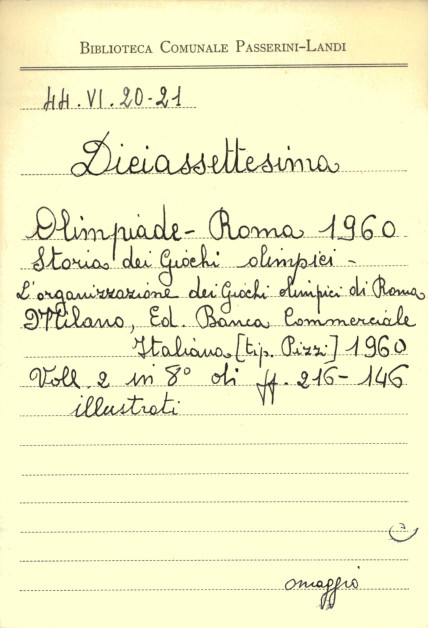 BIBLIOTECA COMUNALE PASSERINI-LANDI
44.VI.20-21
Diciassettesima
Olimpiade - Roma 1960
Storia dei Giochi olimpici -
L'organizzazione dei Giochi olimpici di Roma
Milano, Ed. Banca Commerciale
Italiana [tip. Pizzi] 1960
Voll. 2 in 8° di ff. 216-146
illustrati
omaggio